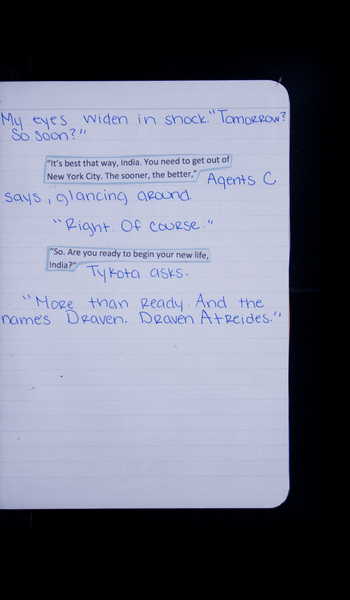 My eyes widen in shock. "Tomorrow?
So soon?"
"It's best that way, India. You need to get out of
New York City. The sooner, the better," Agents C
says, glancing around
"Right. Of course."
"So. Are you ready to begin your new life,
India?" Tykota asks.
"More than Ready. And the
name's Draven. Draven Atreides."